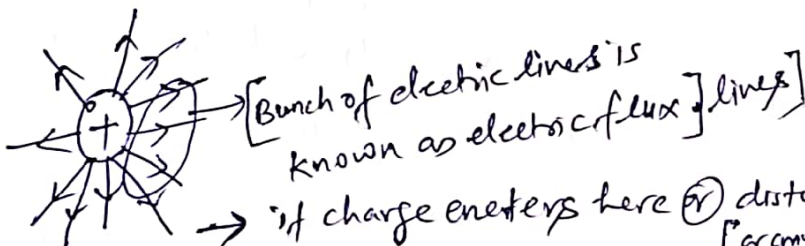 +
[Bunch of electric lines is
known as electric flux] lines]
→ if charge eneters here or disto